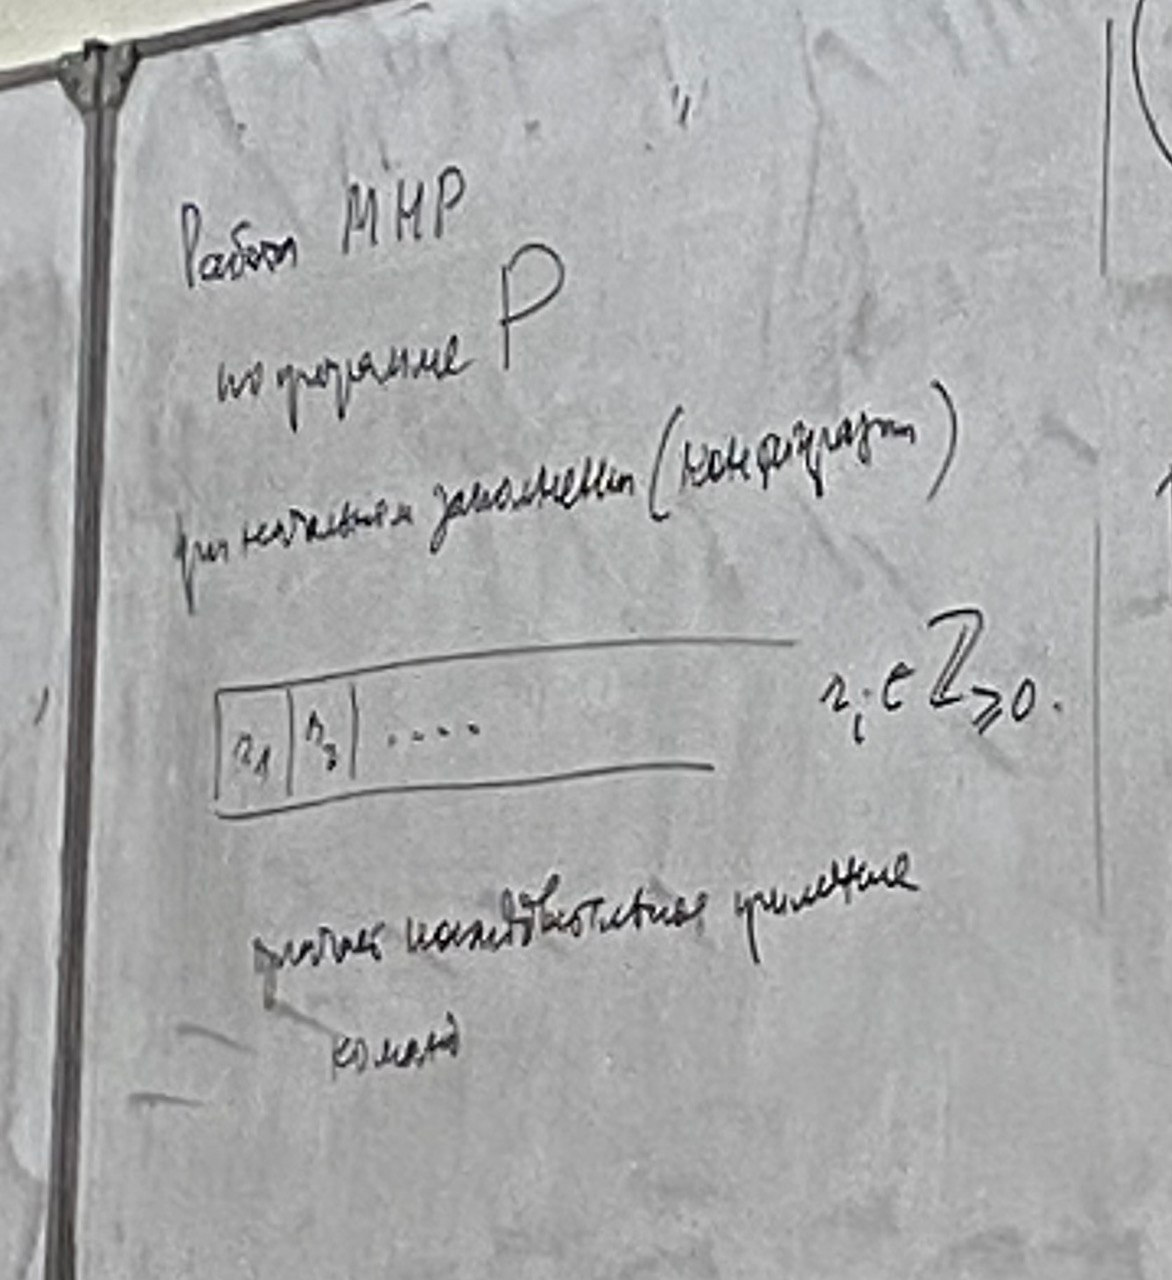 Работа МНР
по программе P
при начальном заполнении (конфигурации)
r₁ r₂ .... rᵢ ∈ ℤ≥0.
означает последовательное применение
команд